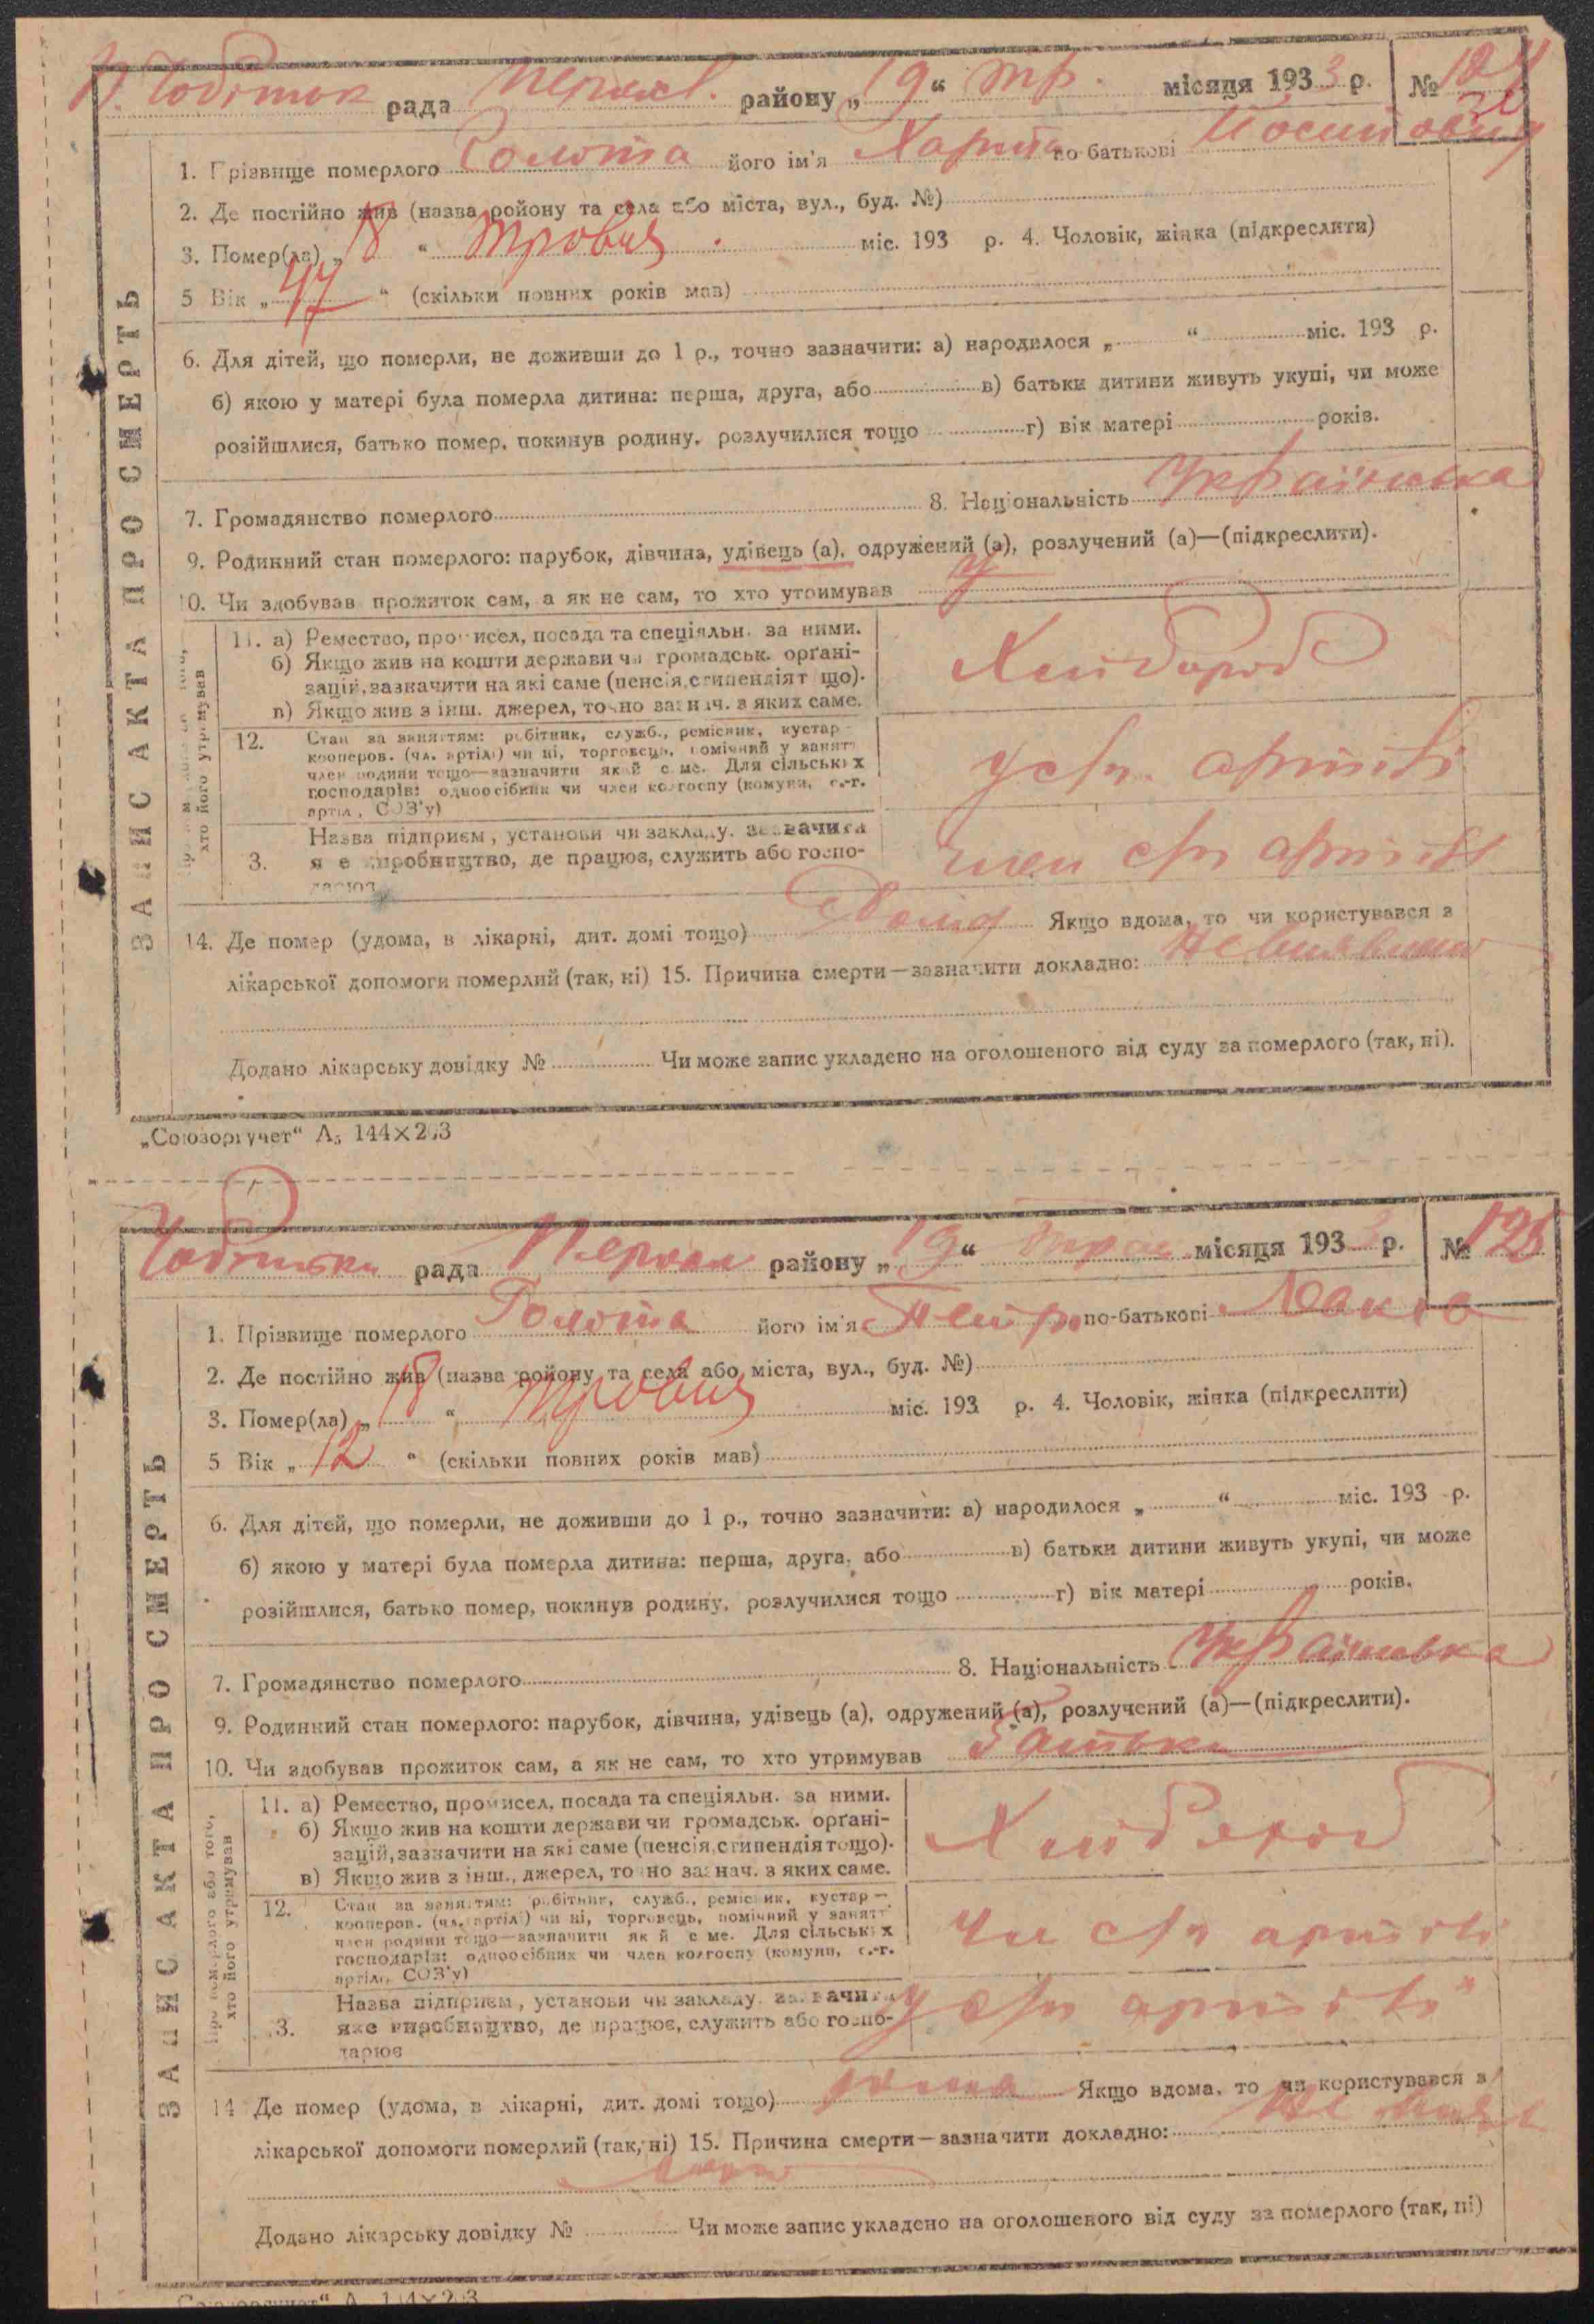 рада район у „ 19 “ тр. місяця 1933 р. № 124
1. Прізвище померлого Голота його ім'я по батькові
2. Де постійно жив (назва ройону та села або міста, вул., буд. №)
3. Помер(ла) „ 18 “ травня міс. 193 р. 4. Чоловік, жінка (підкреслити)
5 Вік „ 47 “ (скільки повних років мав)
6. Для дітей, що померли, не доживши до 1 р., точно зазначити: а) народилося „ “ міс. 193 р.
б) якою у матері була померла дитина: перша, друга, або в) батьки дитини живуть укупі, чи може
розійшлися, батько помер, покинув родину, розлучилися тощо г) вік матері років.
7. Громадянство померлого 8. Національність Українська
9. Родинний стан померлого: парубок, дівчина, удівець (а), одружений (а), розлучений (а)—(підкреслити).
10. Чи здобував прожиток сам, а як не сам, то хто утримував
11. а) Ремество, промисел, посада та спеціяльн. за ними.
б) Якщо жив на кошти держави чи громадськ. орґані-
зацій, зазначити на які саме (пенсія, стипендія тощо).
в) Якщо жив з інш. джерел, точно зазнач. з яких саме.
Хлибороб
12. Стан за заняттям: робітник, служб., ремісник, кустар —
кооперов. (чл. артілі) чи ні, торговець, помічний у занятт
член родини тощо—зазначити який саме. Для сільських
господарів: одноосібник чи член колгоспу (комуни, с.-г.
артіл, СОЗ'у)
у с/г. артілі
3. Назва підприєм, установи чи закладу, зазначити
яке виробництво, де працює, служить або госпо-
дарює
член с/г артілі
14. Де помер (удома, в лікарні, дит. домі тощо) Дома Якщо вдома, то чи користувався з
лікарської допомоги померлий (так, ні) 15. Причина смерти—зазначити докладно:
Додано лікарську довідку № Чи може запис укладено на оголошеного від суду за померлого (так, ні).
ЗАПИС АКТА ПРО СМЕРТЬ
„Союзоргучет“ А₅ 144×203
рада район у „ 19 “ місяця 193 р. № 125
1. Прізвище померлого Голота його ім'я Петро по-батькові
2. Де постійно жив (назва ройону та села або міста, вул., буд. №)
3. Помер(ла) „ 18 “ травня міс. 193 р. 4. Чоловік, жінка (підкреслити)
5 Вік „ 12 “ (скільки повних років мав)
6. Для дітей, що померли, не доживши до 1 р., точно зазначити: а) народилося „ “ міс. 193 р.
б) якою у матері була померла дитина: перша, друга, або в) батьки дитини живуть укупі, чи може
розійшлися, батько помер, покинув родину, розлучилися тощо г) вік матері років.
7. Громадянство померлого 8. Національність Українська
9. Родинний стан померлого: парубок, дівчина, удівець (а), одружений (а), розлучений (а)—(підкреслити).
10. Чи здобував прожиток сам, а як не сам, то хто утримував батьки
11. а) Ремество, промисел, посада та спеціяльн. за ними.
б) Якщо жив на кошти держави чи громадськ. орґані-
зацій, зазначити на які саме (пенсія, стипендія тощо).
в) Якщо жив з інш., джерел, точно зазнач. з яких саме.
Хлибороб
12. Стан за заняттям: робітник, служб., ремісник, кустар —
кооперов. (чл. артілі) чи ні, торговець, помічний у занятт
член родини тощо—зазначити який саме. Для сільських
господарів: одноосібник чи член колгоспу (комуни, с.-г.
артілі, СОЗ'у)
чл с/г артілі
3. Назва підприєм, установи чи закладу, зазначити
яке виробництво, де працює, служить або госпо-
дарює
у с/г артілі
14 Де помер (удома, в лікарні, дит. домі тощо) дома Якщо вдома, то чи користувався з
лікарської допомоги померлий (так, ні) 15. Причина смерти—зазначити докладно:
Додано лікарську довідку № Чи може запис укладено на оголошеного від суду за померлого (так, ні)
ЗАПИС АКТА ПРО СМЕРТЬ
Про померлого або того,
хто його утримував